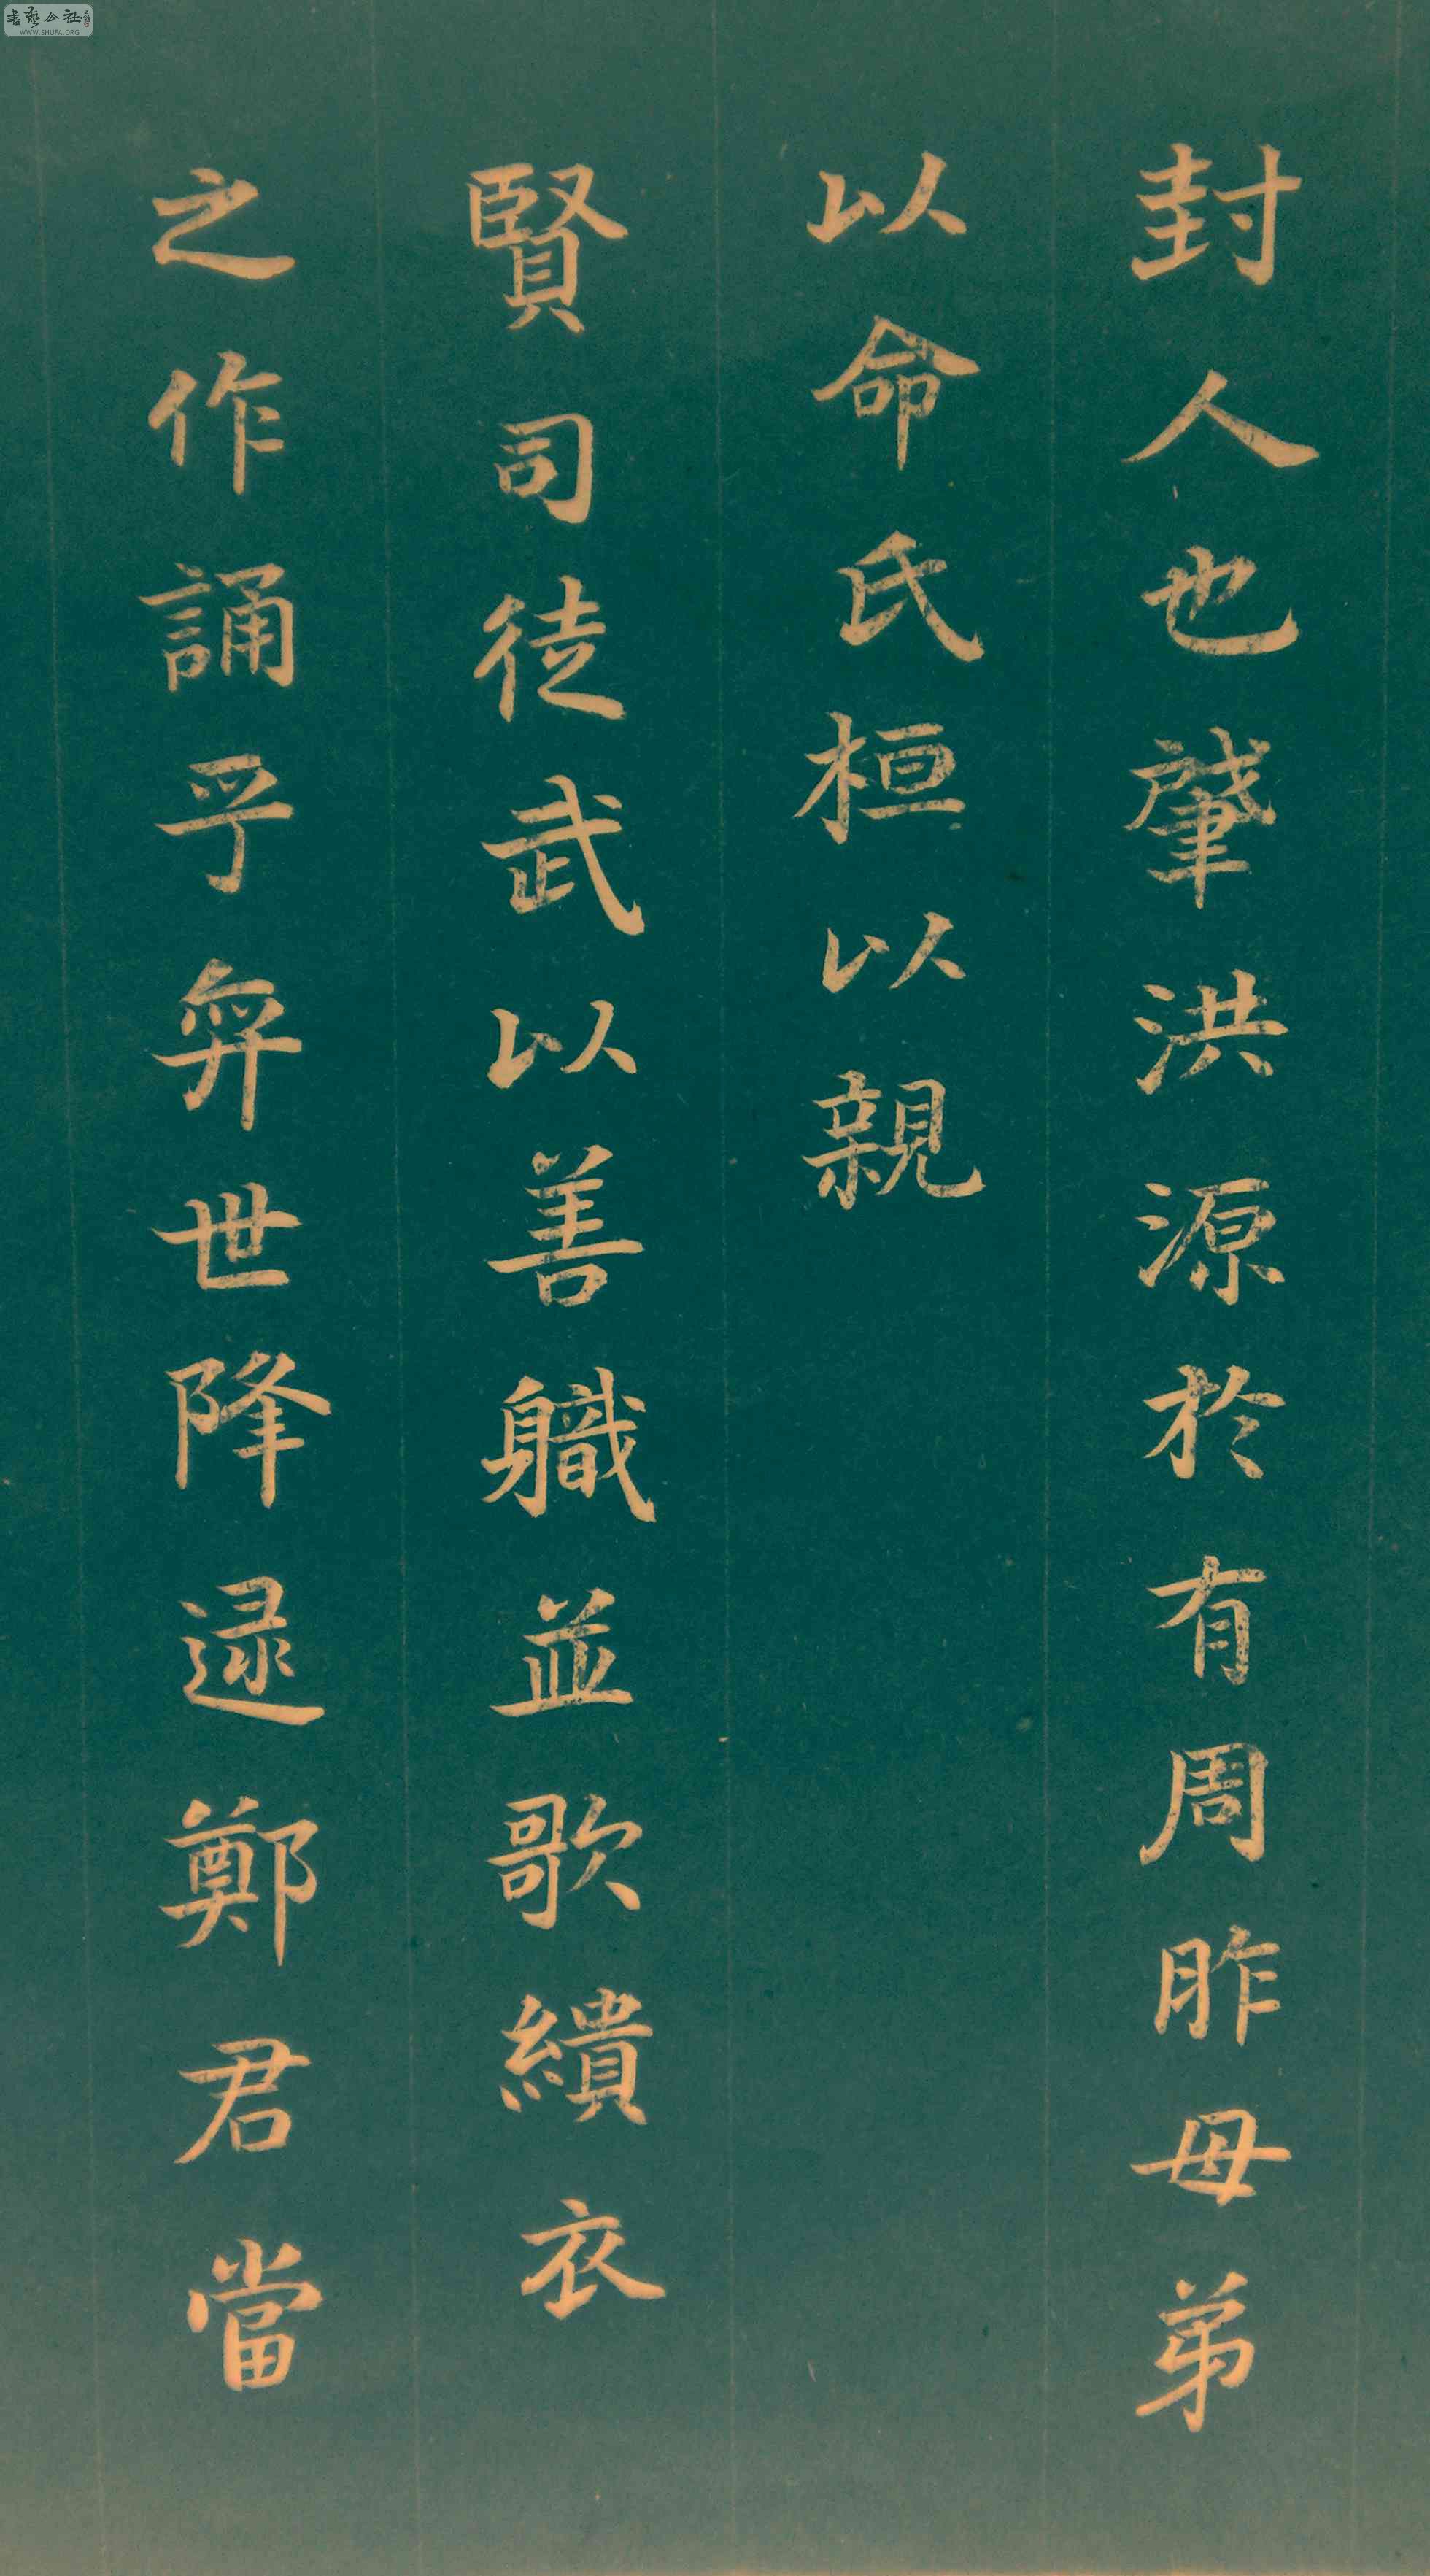 封人也肇洪源於有周胙母弟
以命氏桓以親
賢司徒武以善職並歌緇衣
之作誦乎奕世降逮鄭君當
書藝公社
WWW.SHUFA.ORG